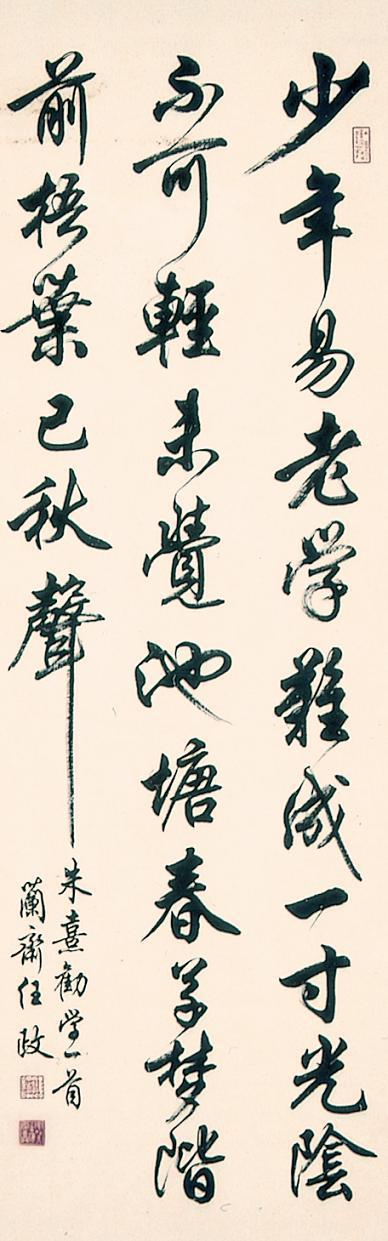 少年易老学難成一寸光陰
不可輕未覺池塘春草夢階
前梧葉已秋聲
朱熹勸学一首
蘭齋任政